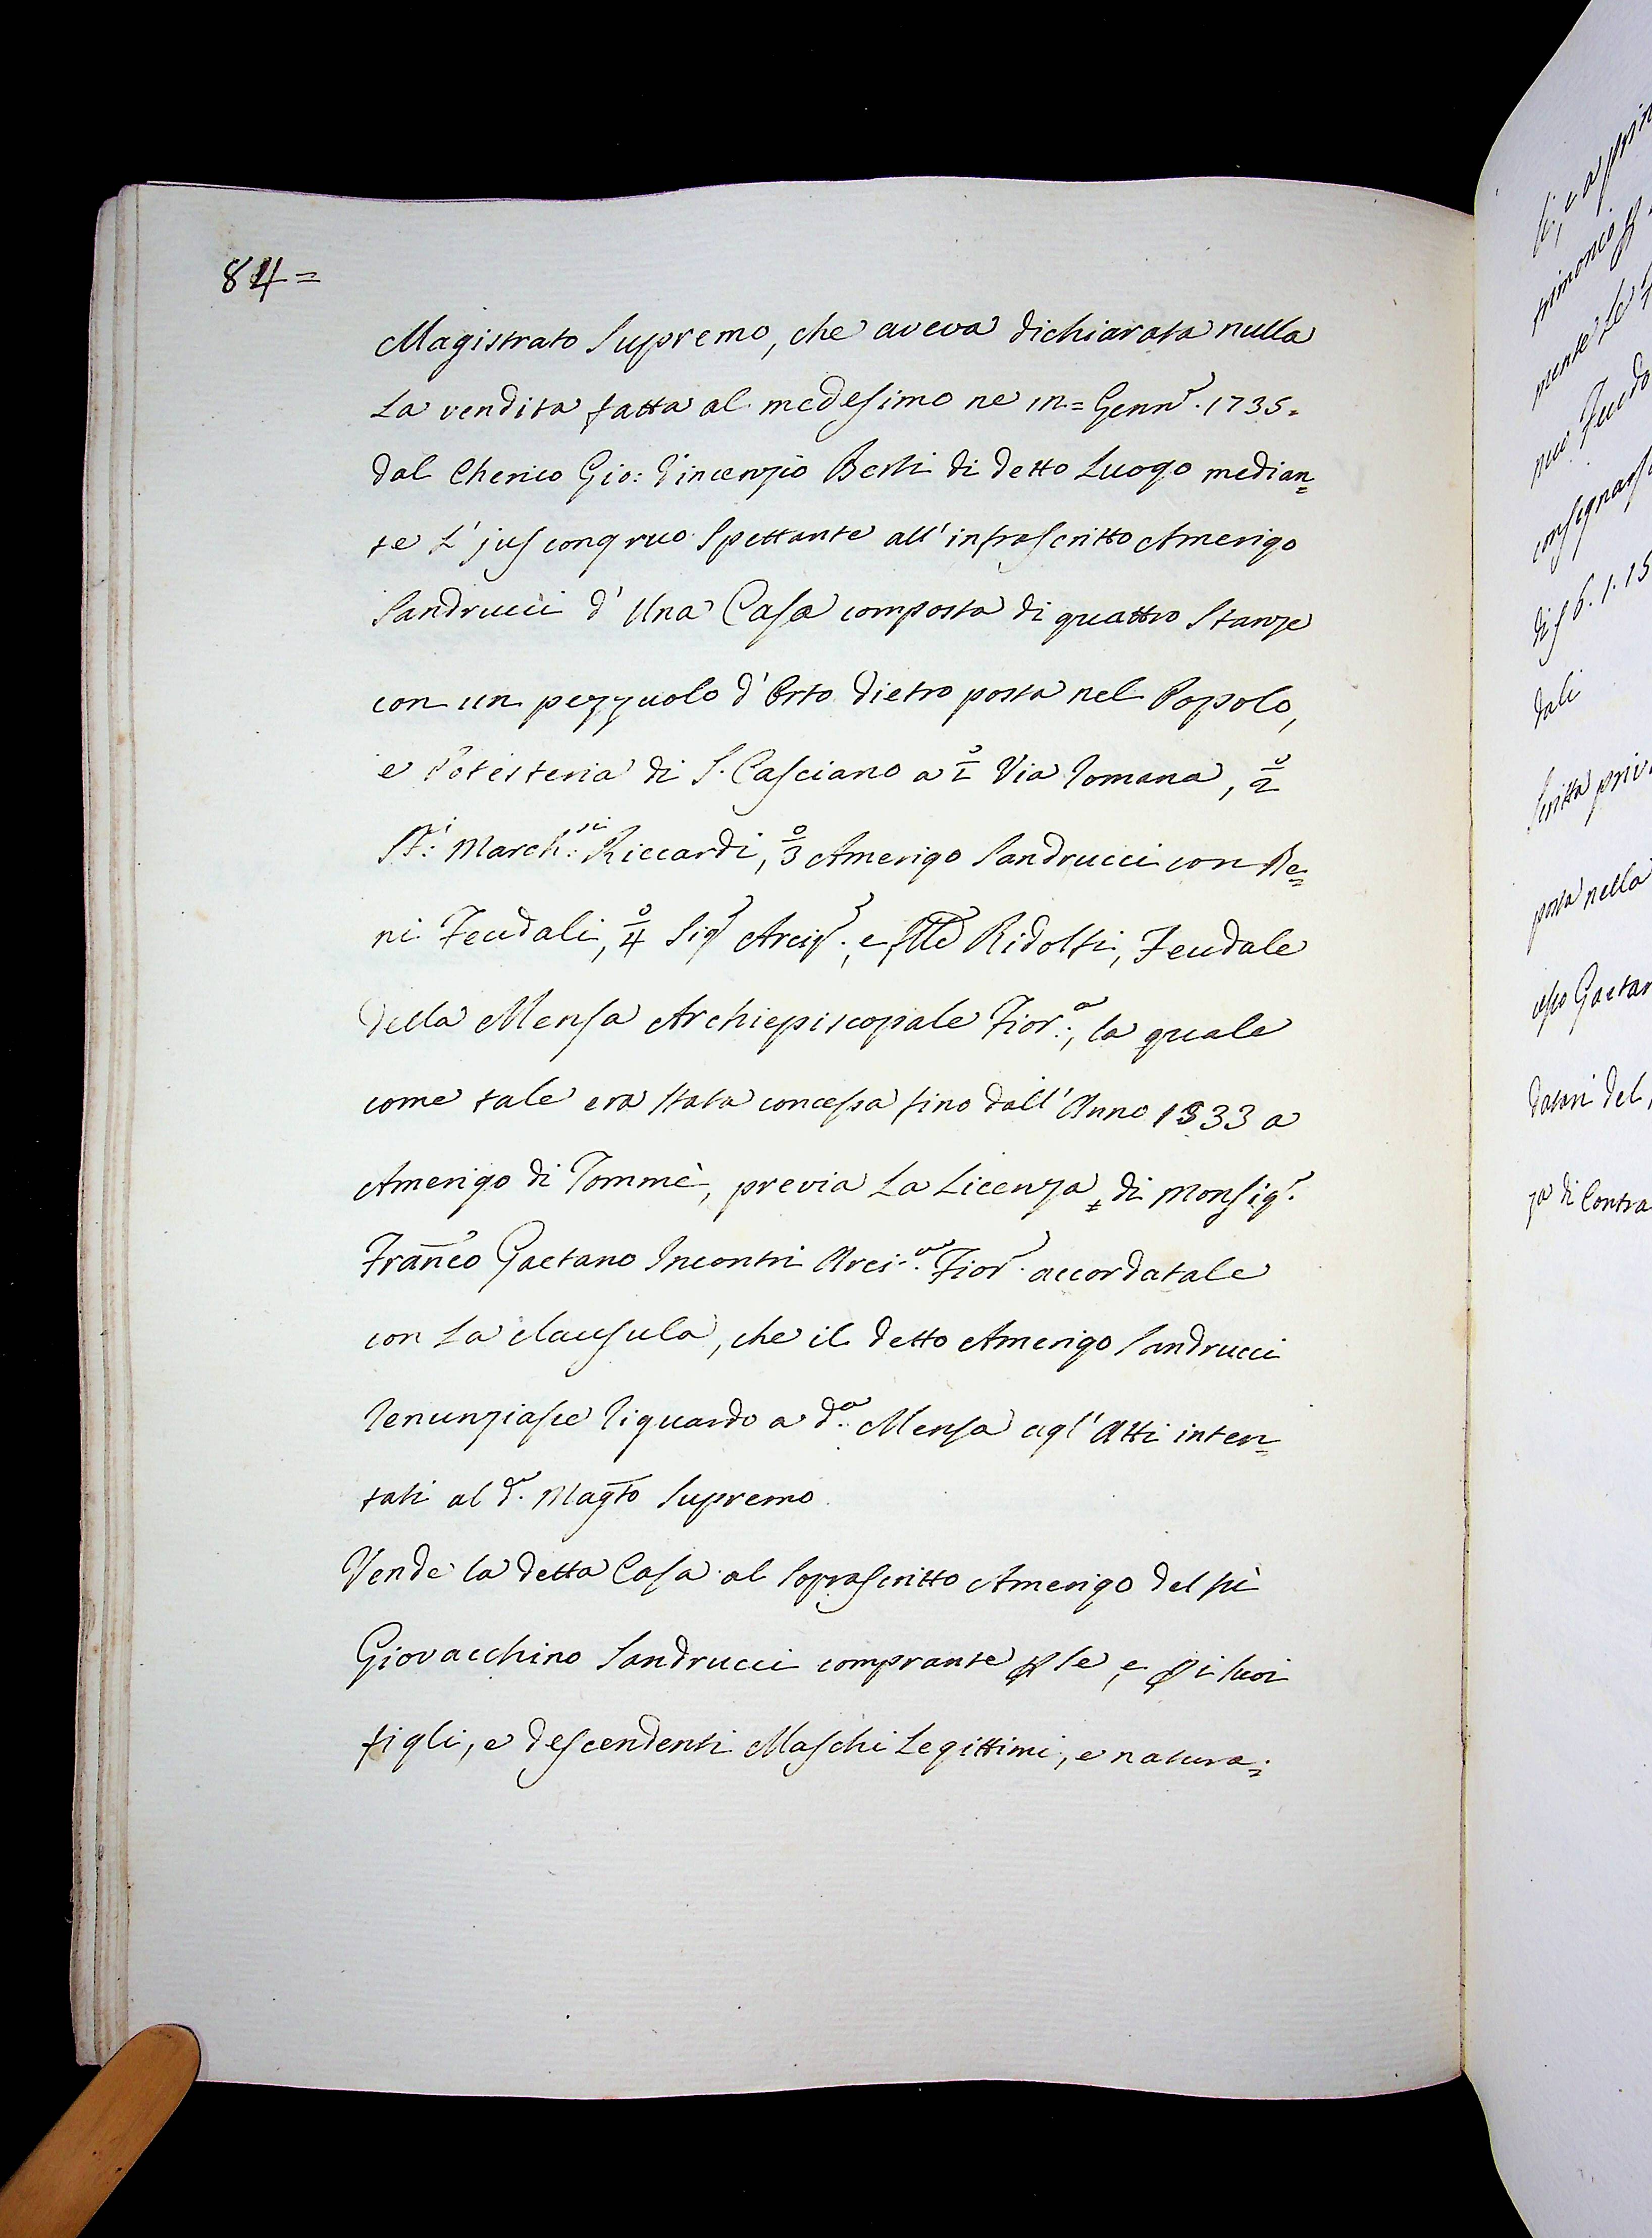 84=
Magistrato Supremo, che aveva dichiarata nulla
La vendita fatta al medesimo ne 12= Gennº. 1735.
dal Cherico Gio: Vincenzio Berti di detto Luogo median=
te L' jus congruo Spettante all' infrascritto Amerigo
Sandrucci d' Una Casa composta di quattro Stanze
con un pezzuolo d' Orto dietro posta nel Popolo,
e Potesteria di S. Casciano a 1º Via Romana, 2º
SS:ri March:si Riccardi, 3º Amerigo Sandrucci con Be=
ni Feudali, 4º Sigr Arcip., e Ridolfi, Feudale
della Mensa Archiepiscopale Fior:a, la quale
come tale era stata concessa fino dall' Anno 1533 a
Amerigo di Tommè, previa La Licenza, di Monsigr.
Franco Gaetano Incontri Arcivo. Fiorº. accordatale
con La clausula, che il detto Amerigo Sandrucci
Renunziasse Riguardo a d:a Mensa agl' Atti inten=
tati al d.o Magto Supremo.
Vendè la detta Casa al Soprascritto Amerigo del fù
Giovacchino Sandrucci comprante p se, e p i suoi
figli, e descendenti Maschi Legittimi, e natura=
di f 6. 1. 15
dali
Scritta priv
posta nella
datari del
za di Contra